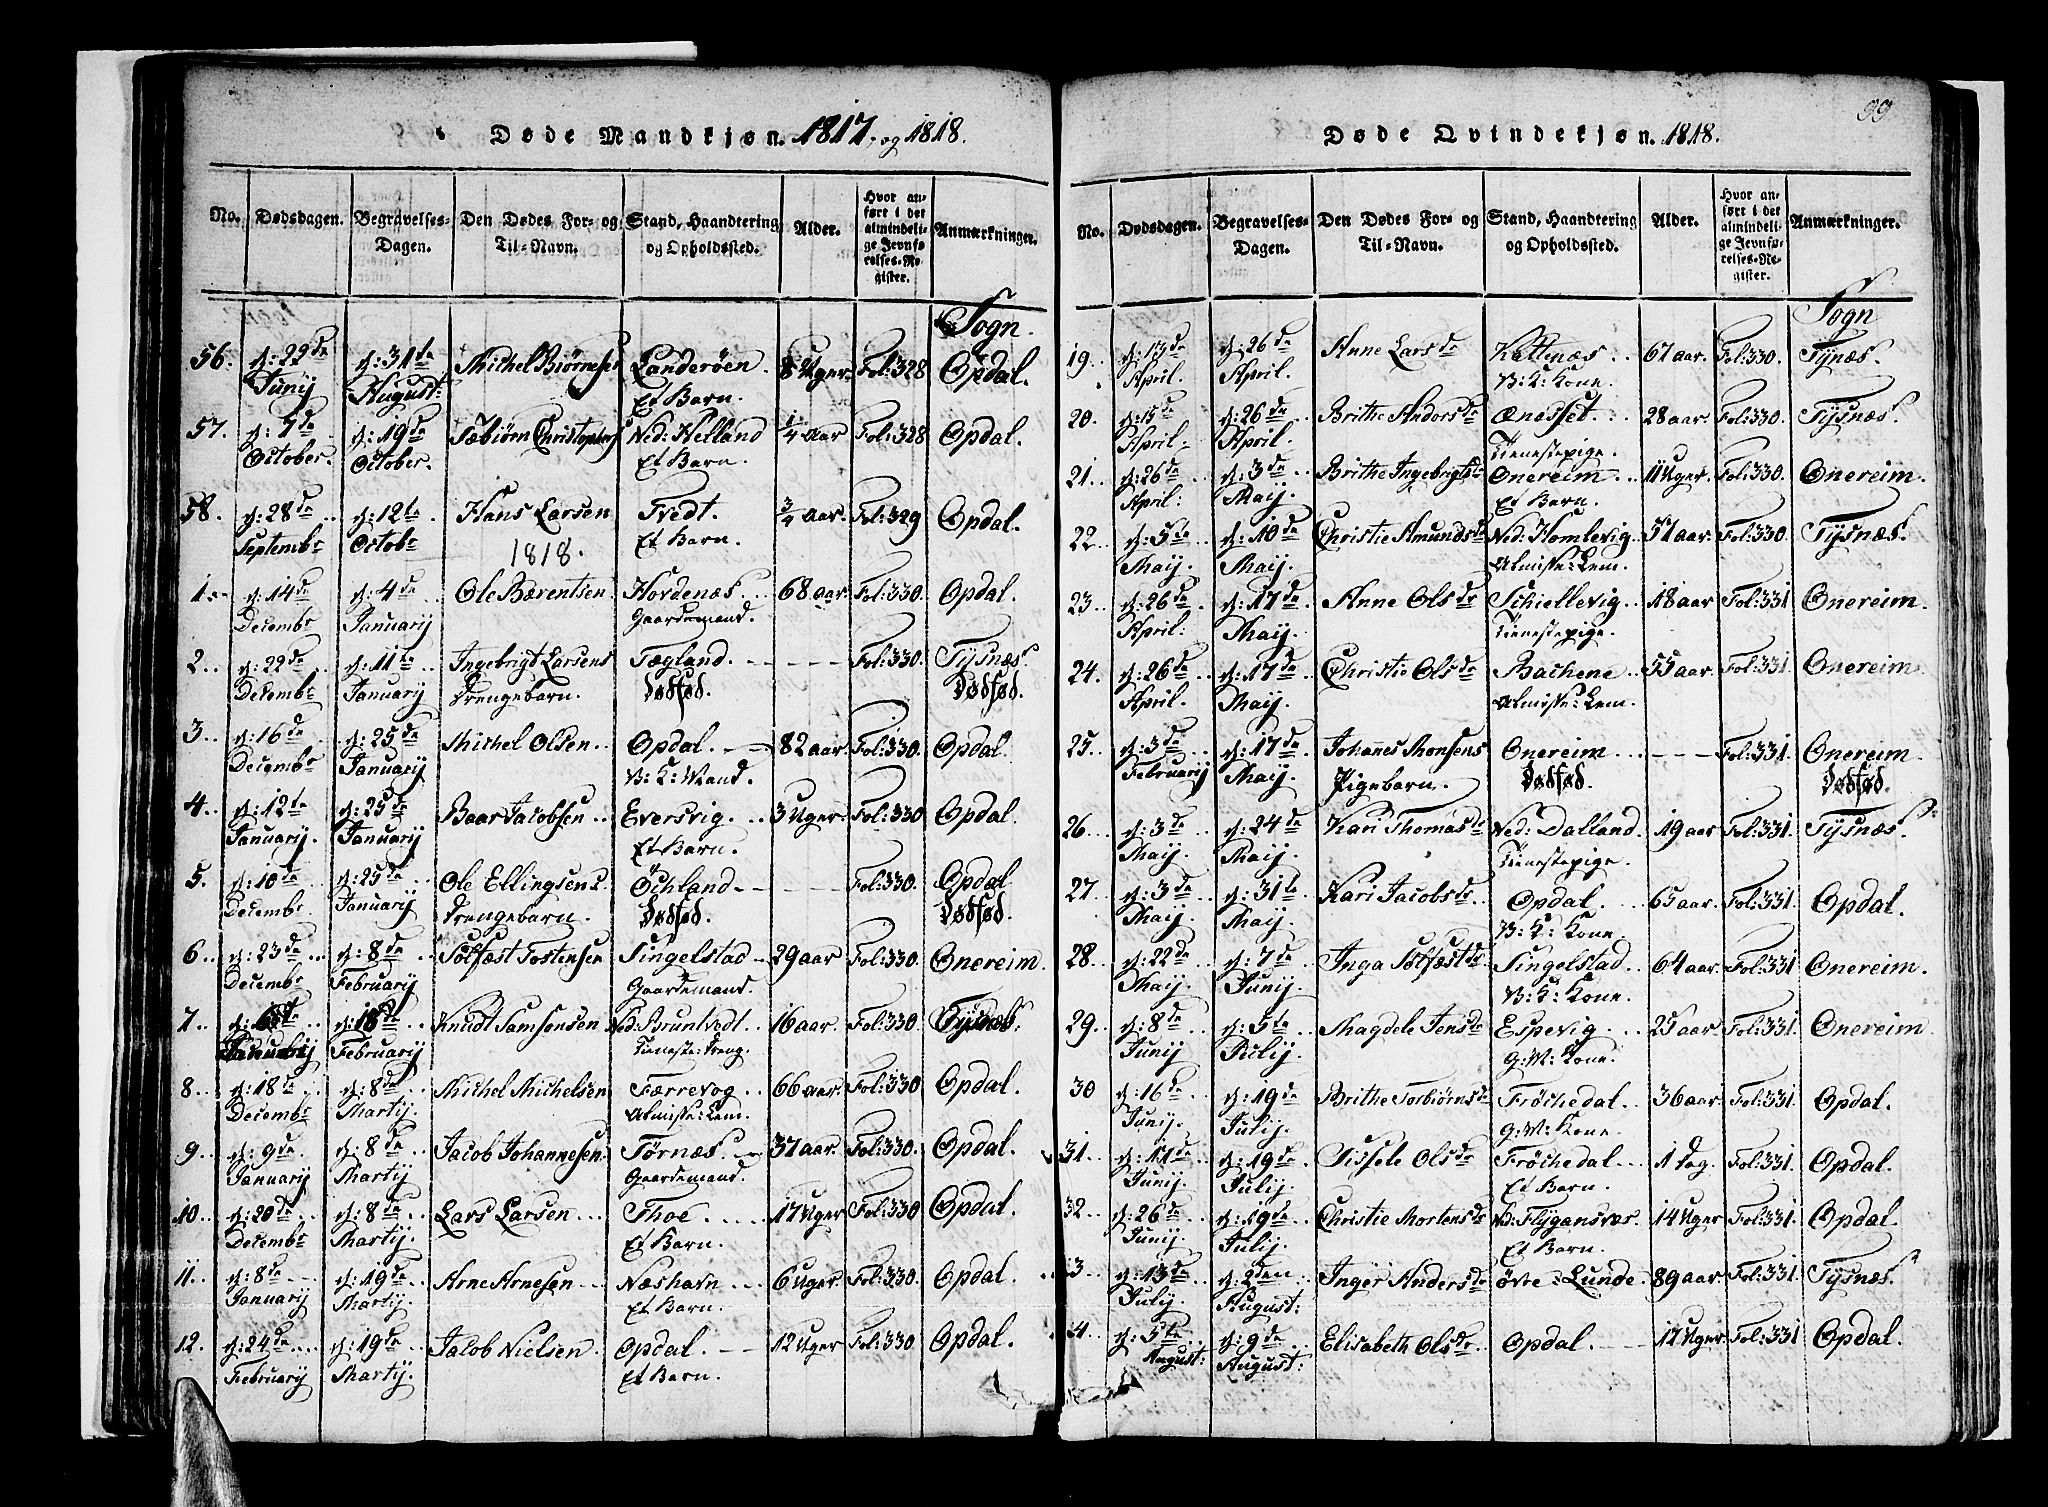 Døde Mandkjøn. 1817, og 1818.
No. Dødsdagen. Begravelses-Dagen. Den Dødes For- og Til-Navn. Stand, Haandtering og Opholdssted. Alder. Hvor anført i det almindelige Jevnførelses-Register. Anmærkninger.
Sogn
56. d: 29de d: 31te Michel Biørnesen Landerøen. 8 Uger. Fol: 328 Opdal.
Junij August: Et Barn.
57. d: 7de d: 19de Tæbiörn Christophers Ned: Helland 1/4 Aar Fol: 328 Opdal.
October. October. Et Barn.
58. d: 28de d: 12te Hans Larsen Tvedt. 3/4 Aar. Fol: 329 Opdal.
Septembr Octobr 1818. Et Barn.
1. d: 14de d: 4de Ole Bærentsen Hordenæs. 68 aar. Fol: 330. Opdal.
Decembr Januarij Gaardemand.
2. d: 22de d: 11te Ingebrigt Larsens Tægland - - - Fol: 330. Tysnæs.
Decembr Januarij Drengebarn. Dødfød. Dødfød.
3. d: 16de d: 25de Michel Olsen Opdal. 82 aar. Fol: 330. Opdal.
Decembr Januarij V: K: Mand.
4. d: 12te d: 25de Baar Jacobsen Eversvig. 3 Uger. Fol: 330 Opdal.
Januarij. Januarij Et Barn.
5. d: 10de d: 25de Ole Ellingsens Öchland - - - Fol: 330. Opdal
Decembr Januarij Drengebarn. Dødfød. Dødfød.
6 d: 23de d: 8de Sølfæst Tostensen Singelstad 29 aar Fol: 330. Onereim.
Decembr Februarij Gaardemand.
7. d: d: 18de Knudt Samsonsen Ned: Bruntvedt 16 aar. Fol: 330 Tysnæs.
Januarij Februarij Tieneste: Dreng.
8. d: 18de d: 8de Michel Michelsen Færrevog 66 aar. Fol: 330 Opdal.
Decembr Martij. Almisse: Lem.
9. d: 9de d: 8de Jacob Johannesen Tørnæs. 37 aar. Fol: 330. Opdal.
Januarij Martij Gaardemand.
10. d: 20de d: 8de Lars Larsen Thoe. 17 Uger Fol: 330 Opdal.
Decembr Martij. Et Barn.
11. d: 8de d: 19de Arne Arnesen Næshavn 6 Uger. Fol: 330. Opdal.
Januarij Martij. Et Barn.
12. d: 24de d: 19de Jacob Nielsen Opdal. 12 Uger Fol: 330 Opdal.
Februarij Martij. Et Barn.
99
Døde Qvindekjøn. 1818.
No. Dødsdagen. Begravelses-Dagen. Den Dødes For- og Til-Navn. Stand, Haandtering og Opholdssted. Alder. Hvor anført i det almindelige Jevnførelses-Register. Anmærkninger.
Sogn
19. d: 13de d: 26de Anne Larsdr Kattenæs. 67 aar. Fol: 330. Tysnæs.
April. April. V: K: Kone.
20. d: 15de d: 26de Brithe Andorsdr Ænesset 28 aar Fol: 330. Tysnæs.
April: April. Tienestepige.
21. d: 26de d: 3de Brithe Ingebrigtsdr Onereim 11 Uger. Fol: 330. Onereim.
April: Maij. Et Barn.
22. d: 5te d: 10de Christie Amundsdr Ned: Homlevig 57 aar. Fol: 330 Tysnæs.
Maij. Maij. Almisse: Lem.
23. d: 26de d: 17de Anne Olsdr Schiellevig 18 aar Fol: 331 Onereim.
April: Maij. Tienestepige.
24. d: 26de d: 17de Christie Olsdr Bachene 55 aar Fol: 331. Onereim
April. Maij. Almisse: Lem.
25. d: 3de d: 17de Johannes Monsens Onereim - - - Fol: 331. Onereim
Februarij Maij. Pigebarn. Dødfød. Dødfød.
26. d: 3de d: 24de Kari Thomasdr Ned: Dalland. 19 aar Fol: 331. Tysnæs.
Maij. Maij. Tienestepige.
27. d: 3de d: 31te Kari Jacobsdr Opdal. 65 aar. Fol: 331. Opdal.
Maij. Maij. V: K: Kone.
28. d: 22de d: 7de Inga Sølfæstdr Singelstad 64 aar Fol: 331 Onereim.
Maij. Junij. V: K: Kone.
29. d: 8de d: 5te Magdele Jensdr Espevig. 25 aar Fol: 331. Onereim
Junij Julij. G: M: Kone.
30 d: 16de d: 19de Brithe Torbiørnsdr Fröchedal. 36 aar. Fol: 331. Opdal.
Junij. Julij. G: M: Kone.
31. d: 11de d: 19de Sissele Olsdr Fröchedal 1 dag. Fol: 331. Opdal.
Junij. Julij. Et Barn.
32. d: 26de d: 19de Christie Mortensdr Ned: Flygansvær 14 Uger Fol: 331. Opdal.
Junij. Julij. Et Barn.
3. d: 13de d: 2den Inger Andersdr øvre: Lunde. 89 aar. Fol: 331. Tysnæs.
Julij. August:
4. d: 5te d: 9de Elisabeth Olsdr Opdal. 17 Uger. Fol: 331 Opdal.
August: August: